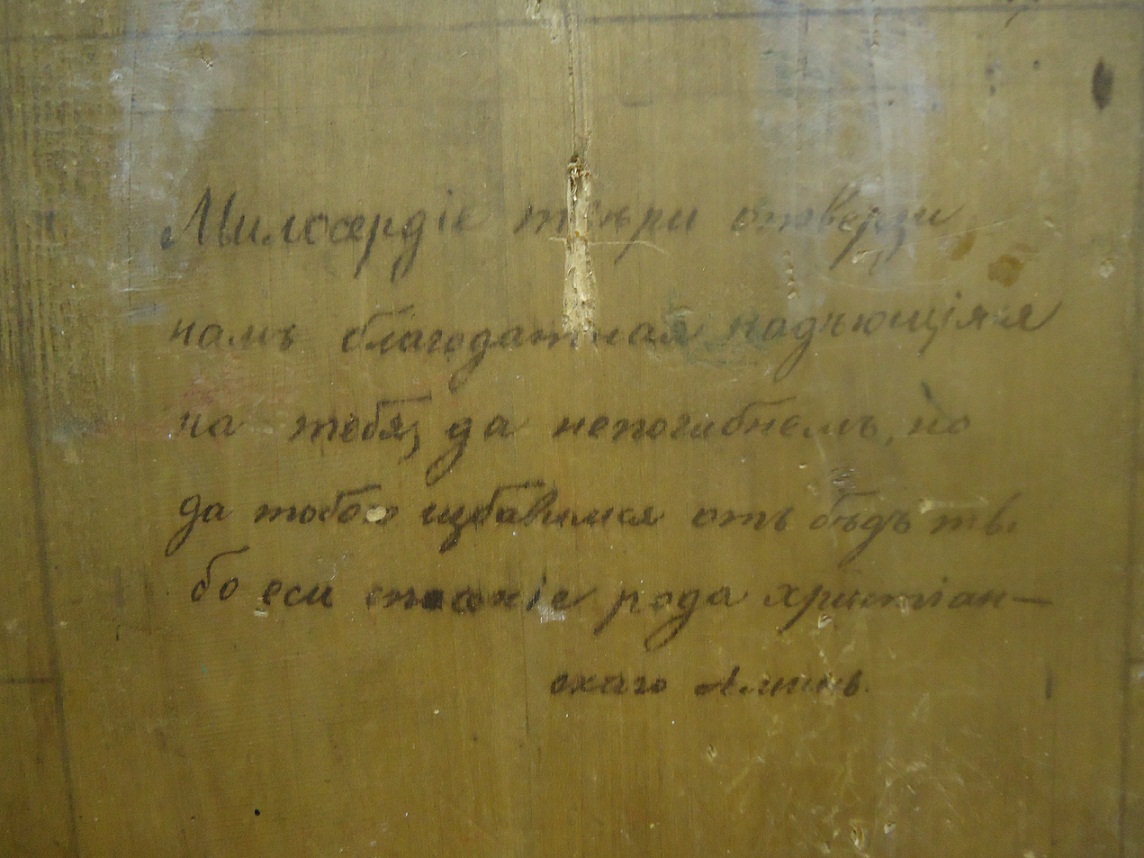 Милосердіе двѣри отверзи
намъ благодатная надѣющіяся
на тебя, да непогибнемъ, но
да тобою избавимся отъ бѣдъ ты
бо еси спасеніе рода христіан-
скаго Аминь.